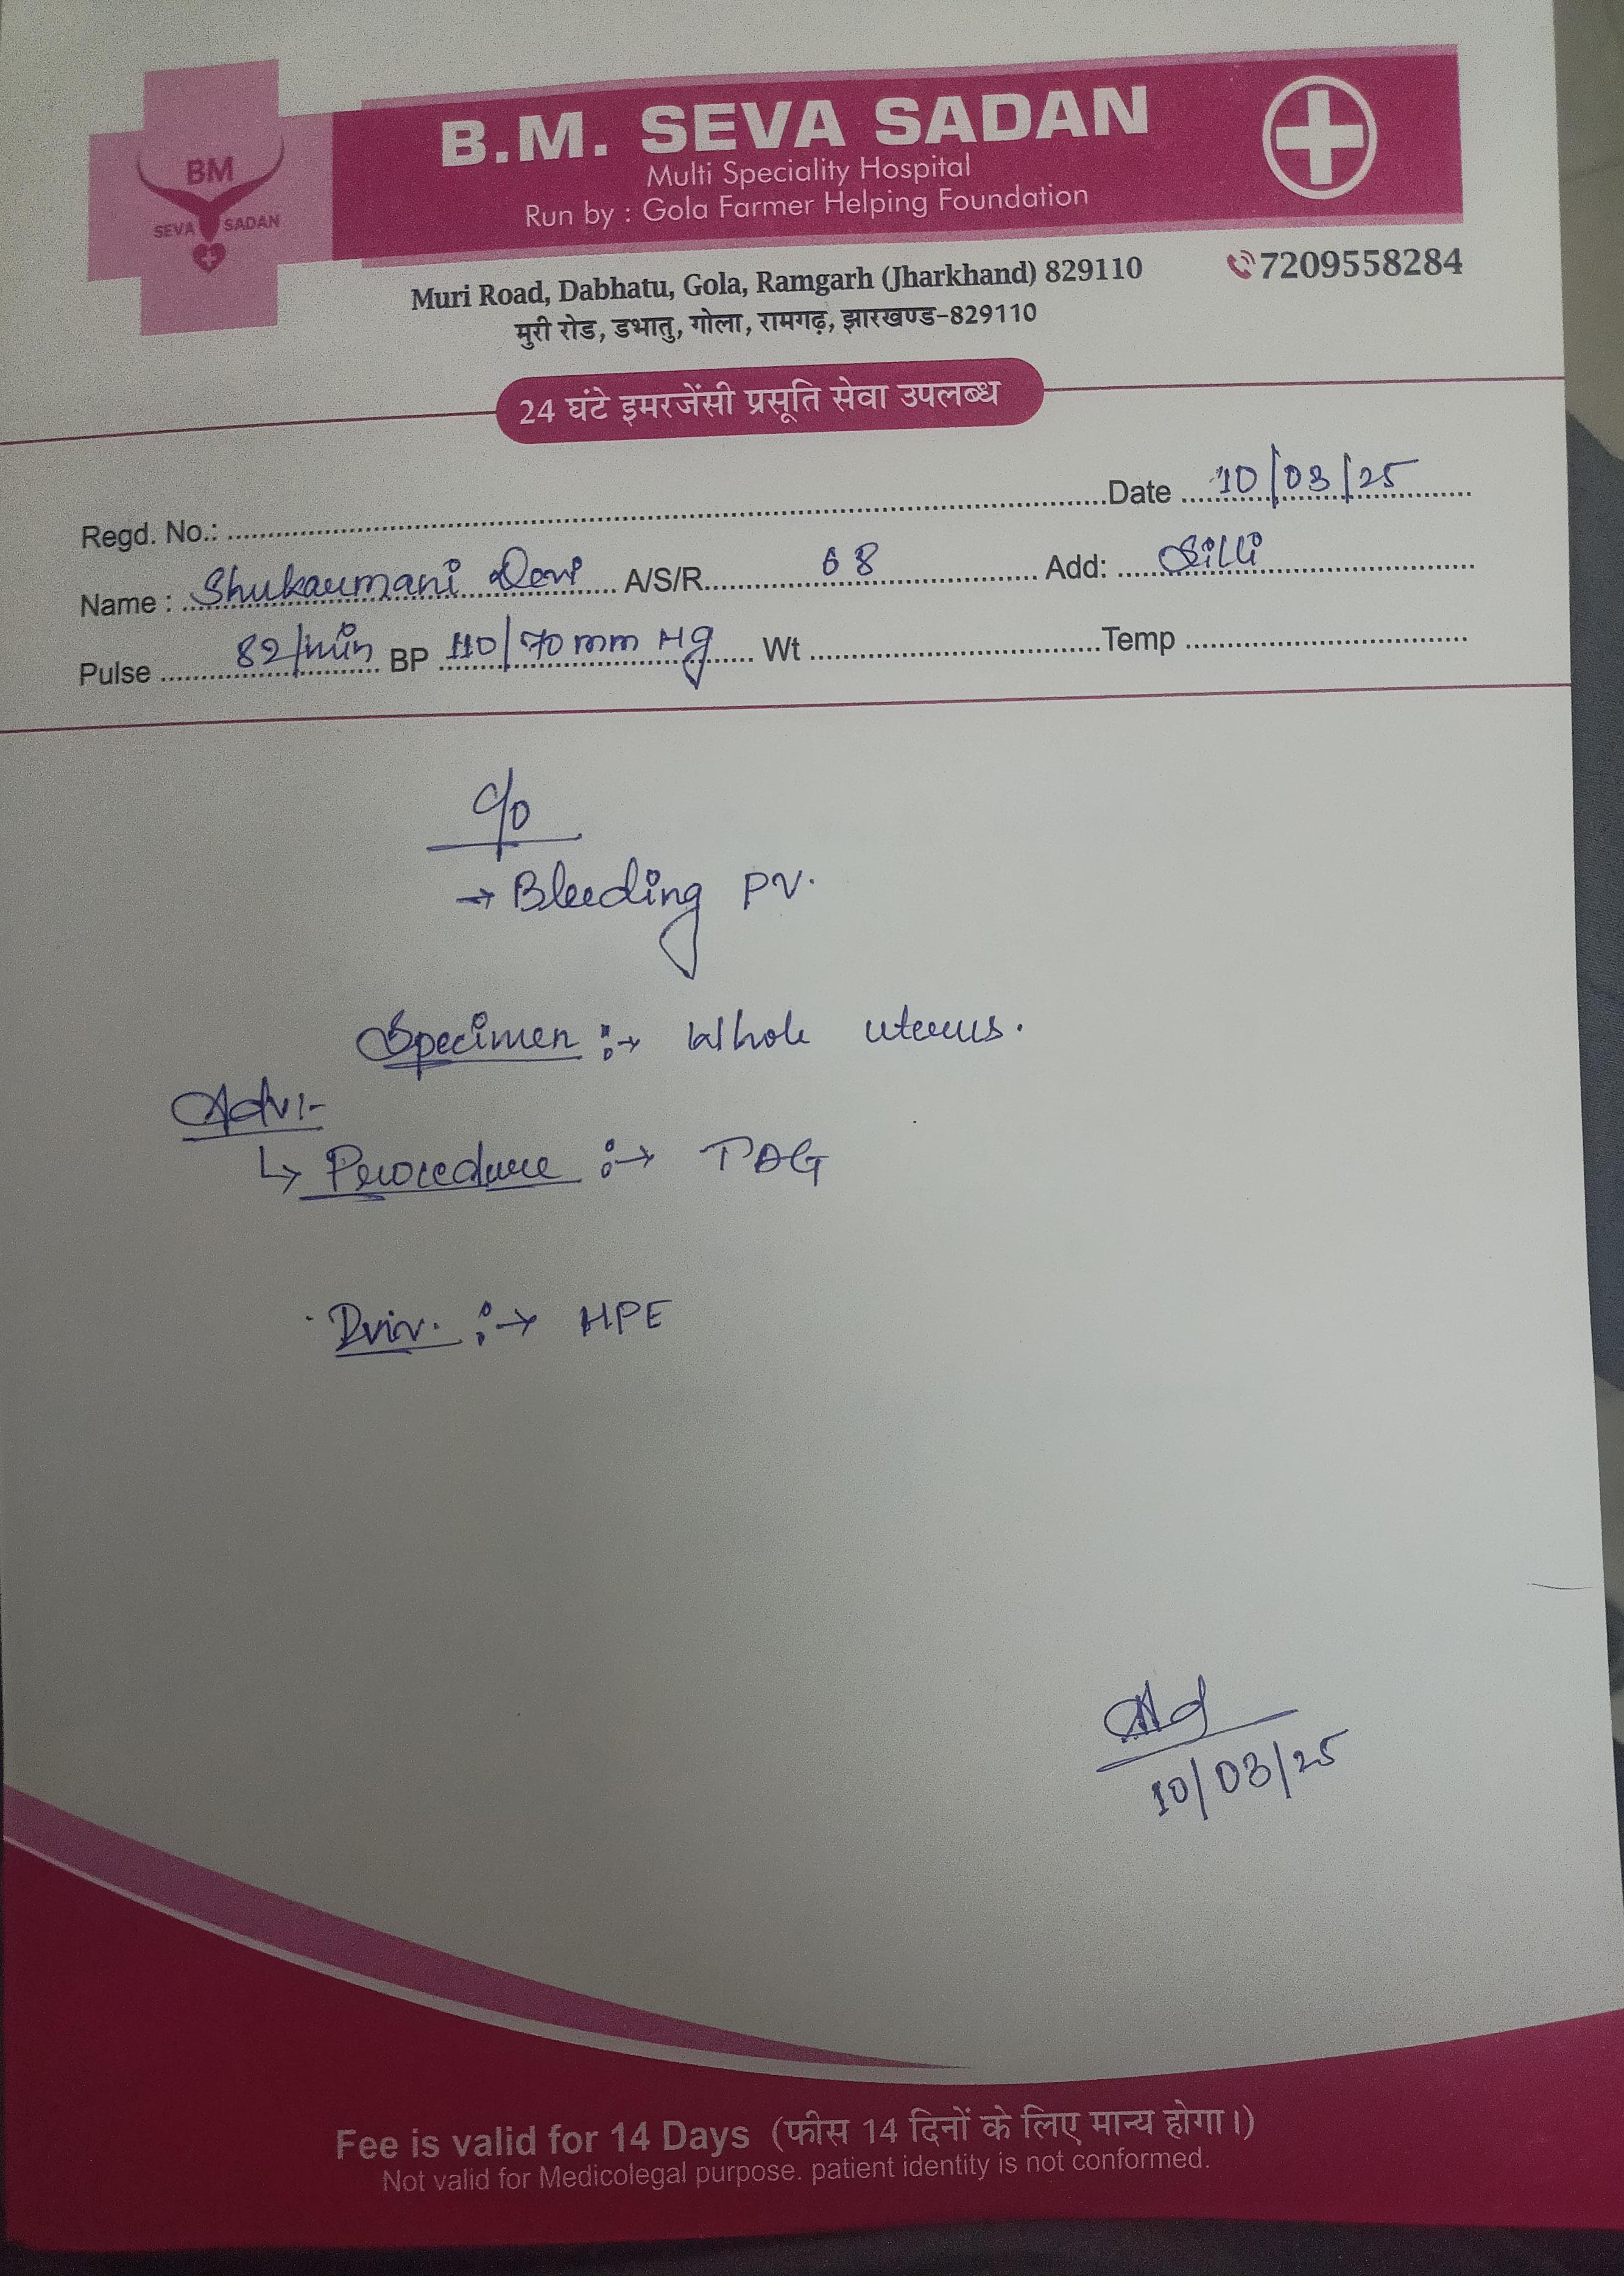 BM
SEVA SADAN
B.M. SEVA SADAN
Multi Speciality Hospital
Run by : Gola Farmer Helping Foundation
Muri Road, Dabhatu, Gola, Ramgarh (Jharkhand) 829110
7209558284
मुरी रोड, डभातु, गोला, रामगढ़, झारखण्ड-829110
24 घंटे इमरजेंसी प्रसूति सेवा उपलब्ध
Regd. No.: Date 10/03/25
Name : Shukarmani Devi A/S/R 68 Add: Silli
Pulse 82/min BP 110/70 mm Hg Wt Temp
c/o
→ Bleeding PV.
Specimen :→ Whole uterus.
Adv:-
↳ Procedure :→
:→ HPE
10/03/25
Fee is valid for 14 Days (फीस 14 दिनों के लिए मान्य होगा।)
Not valid for Medicolegal purpose. patient identity is not conformed.